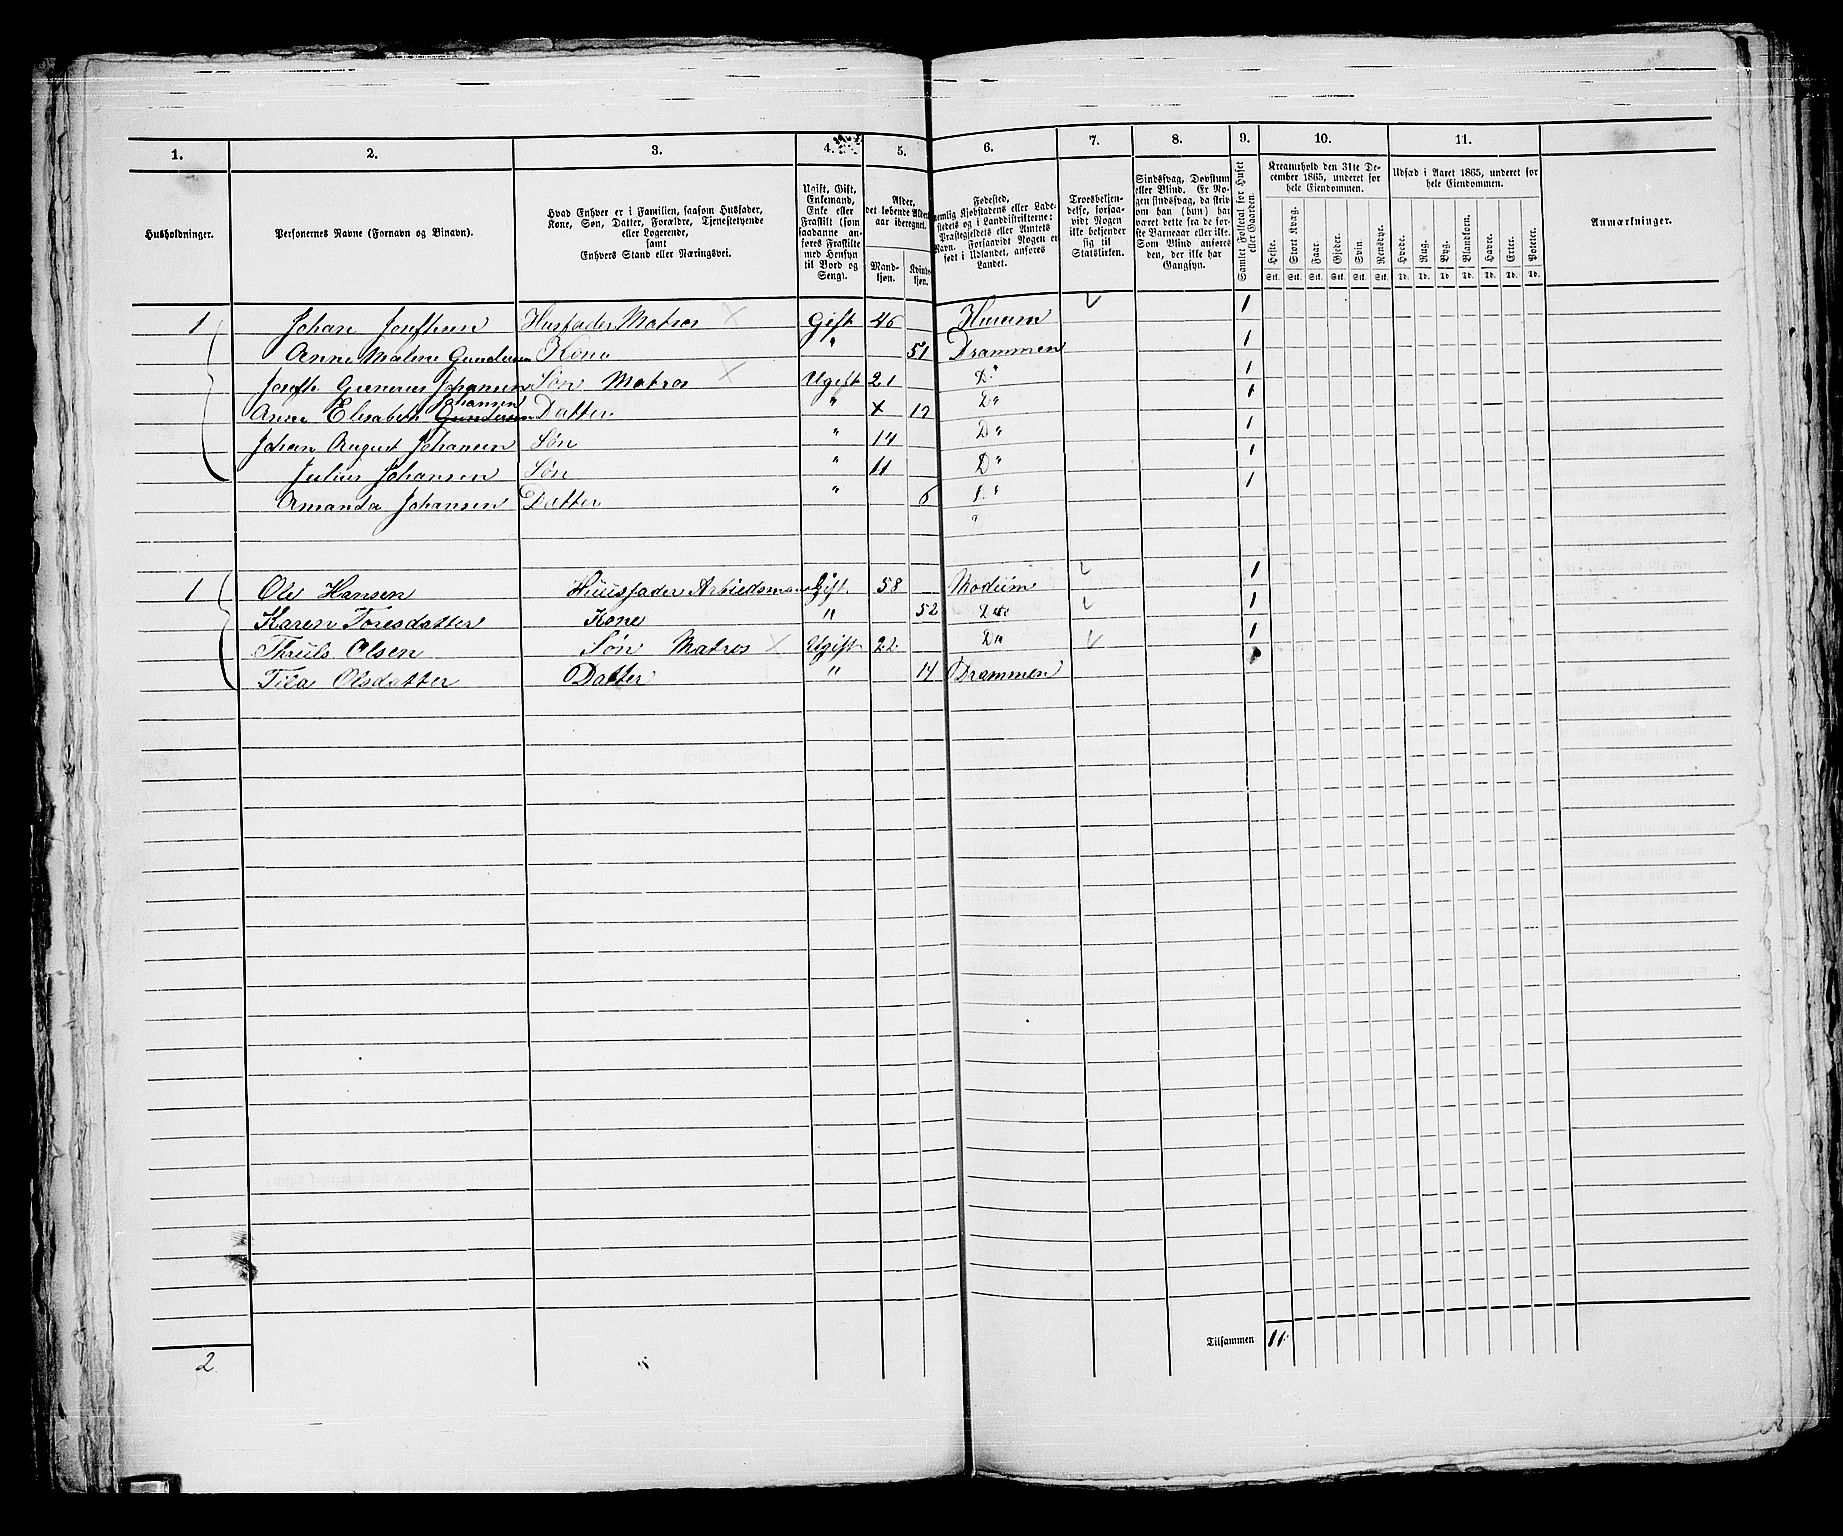 1. 2. 3. 4. 5. 6. 7. 8. 9. 10. 11.
Husholdninger.
Personernes Navne (Fornavn og Binavn).
Hvad Enhver er i Familien, saasom Husfader,
Kone, Søn, Datter, Forældre, Tjenestetyende
eller Logerende,
samt
Enhvers Stand eller Næringsvei.
Ugift, Gift,
Enkemand,
Enke eller
Fraskilt (som
saadanne an-
føres Fraskilte
med Hensyn
til Bord og
Seng).
Alder,
det løbende Alders-
aar iberegnet.
Mand-
kjøn.
Kvinde-
kjøn.
Fødested,
nemlig Kjøbstadens eller Lade-
stedets og i Landdistrikterne:
Præstegjeldets eller Amtets
Navn. Forsaavidt Nogen er
født i Udlandet, anføres
Landet.
Troesbekjen-
delse, forsaa-
vidt Nogen
ikke bekjender
sig til
Statskirken.
Sindssvag, Døvstum
eller Blind. Er No-
gen sindssvag, da skriv
om han (hun) har
været dette fra de før-
ste Barneaar eller ikke.
Som Blind anføres
den, der ikke har
Gangsyn.
Samlet Folketal for Huset
eller Gaarden.
Kreaturhold den 31te De-
cember 1865, underet for
hele Eiendommen.
Heste. Stort Kvæg. Faar. Gjeder. Svin. Rensdyr.
Stk. Stk. Stk. Stk. Stk. Stk.
Udsæd i Aaret 1865, underet for
hele Eiendommen.
Hvede. Rug. Byg. Blandkorn. Havre. Erter. Poteter.
Td. Td. Td. Td. Td. Td. Td.
Anmærkninger.
1 Johan Husfader Matros Gift 46 Hurum 1
Anne Malene Gundersen Kone " 51 Drammen 1
Gunerius Johansen Søn Matros Ugift 21 D" 1
Johansen
Anne Elisabeth Gundersen Datter " 17 D" 1
Johan August Johansen Søn " 14 D" 1
Julius Johansen Søn " 11 D" 1
Amanda Johansen Datter " 6 D" 1
1 Ole Hansen Huusfader Arbeidsmand Gift 58 Modum 1
Karen Toresdatter Kone " 52 Do 1
Olsen Søn Matros Ugift 22 Do 1
Olsdatter Datter " 14 Drammen
Tilsammen 11
2